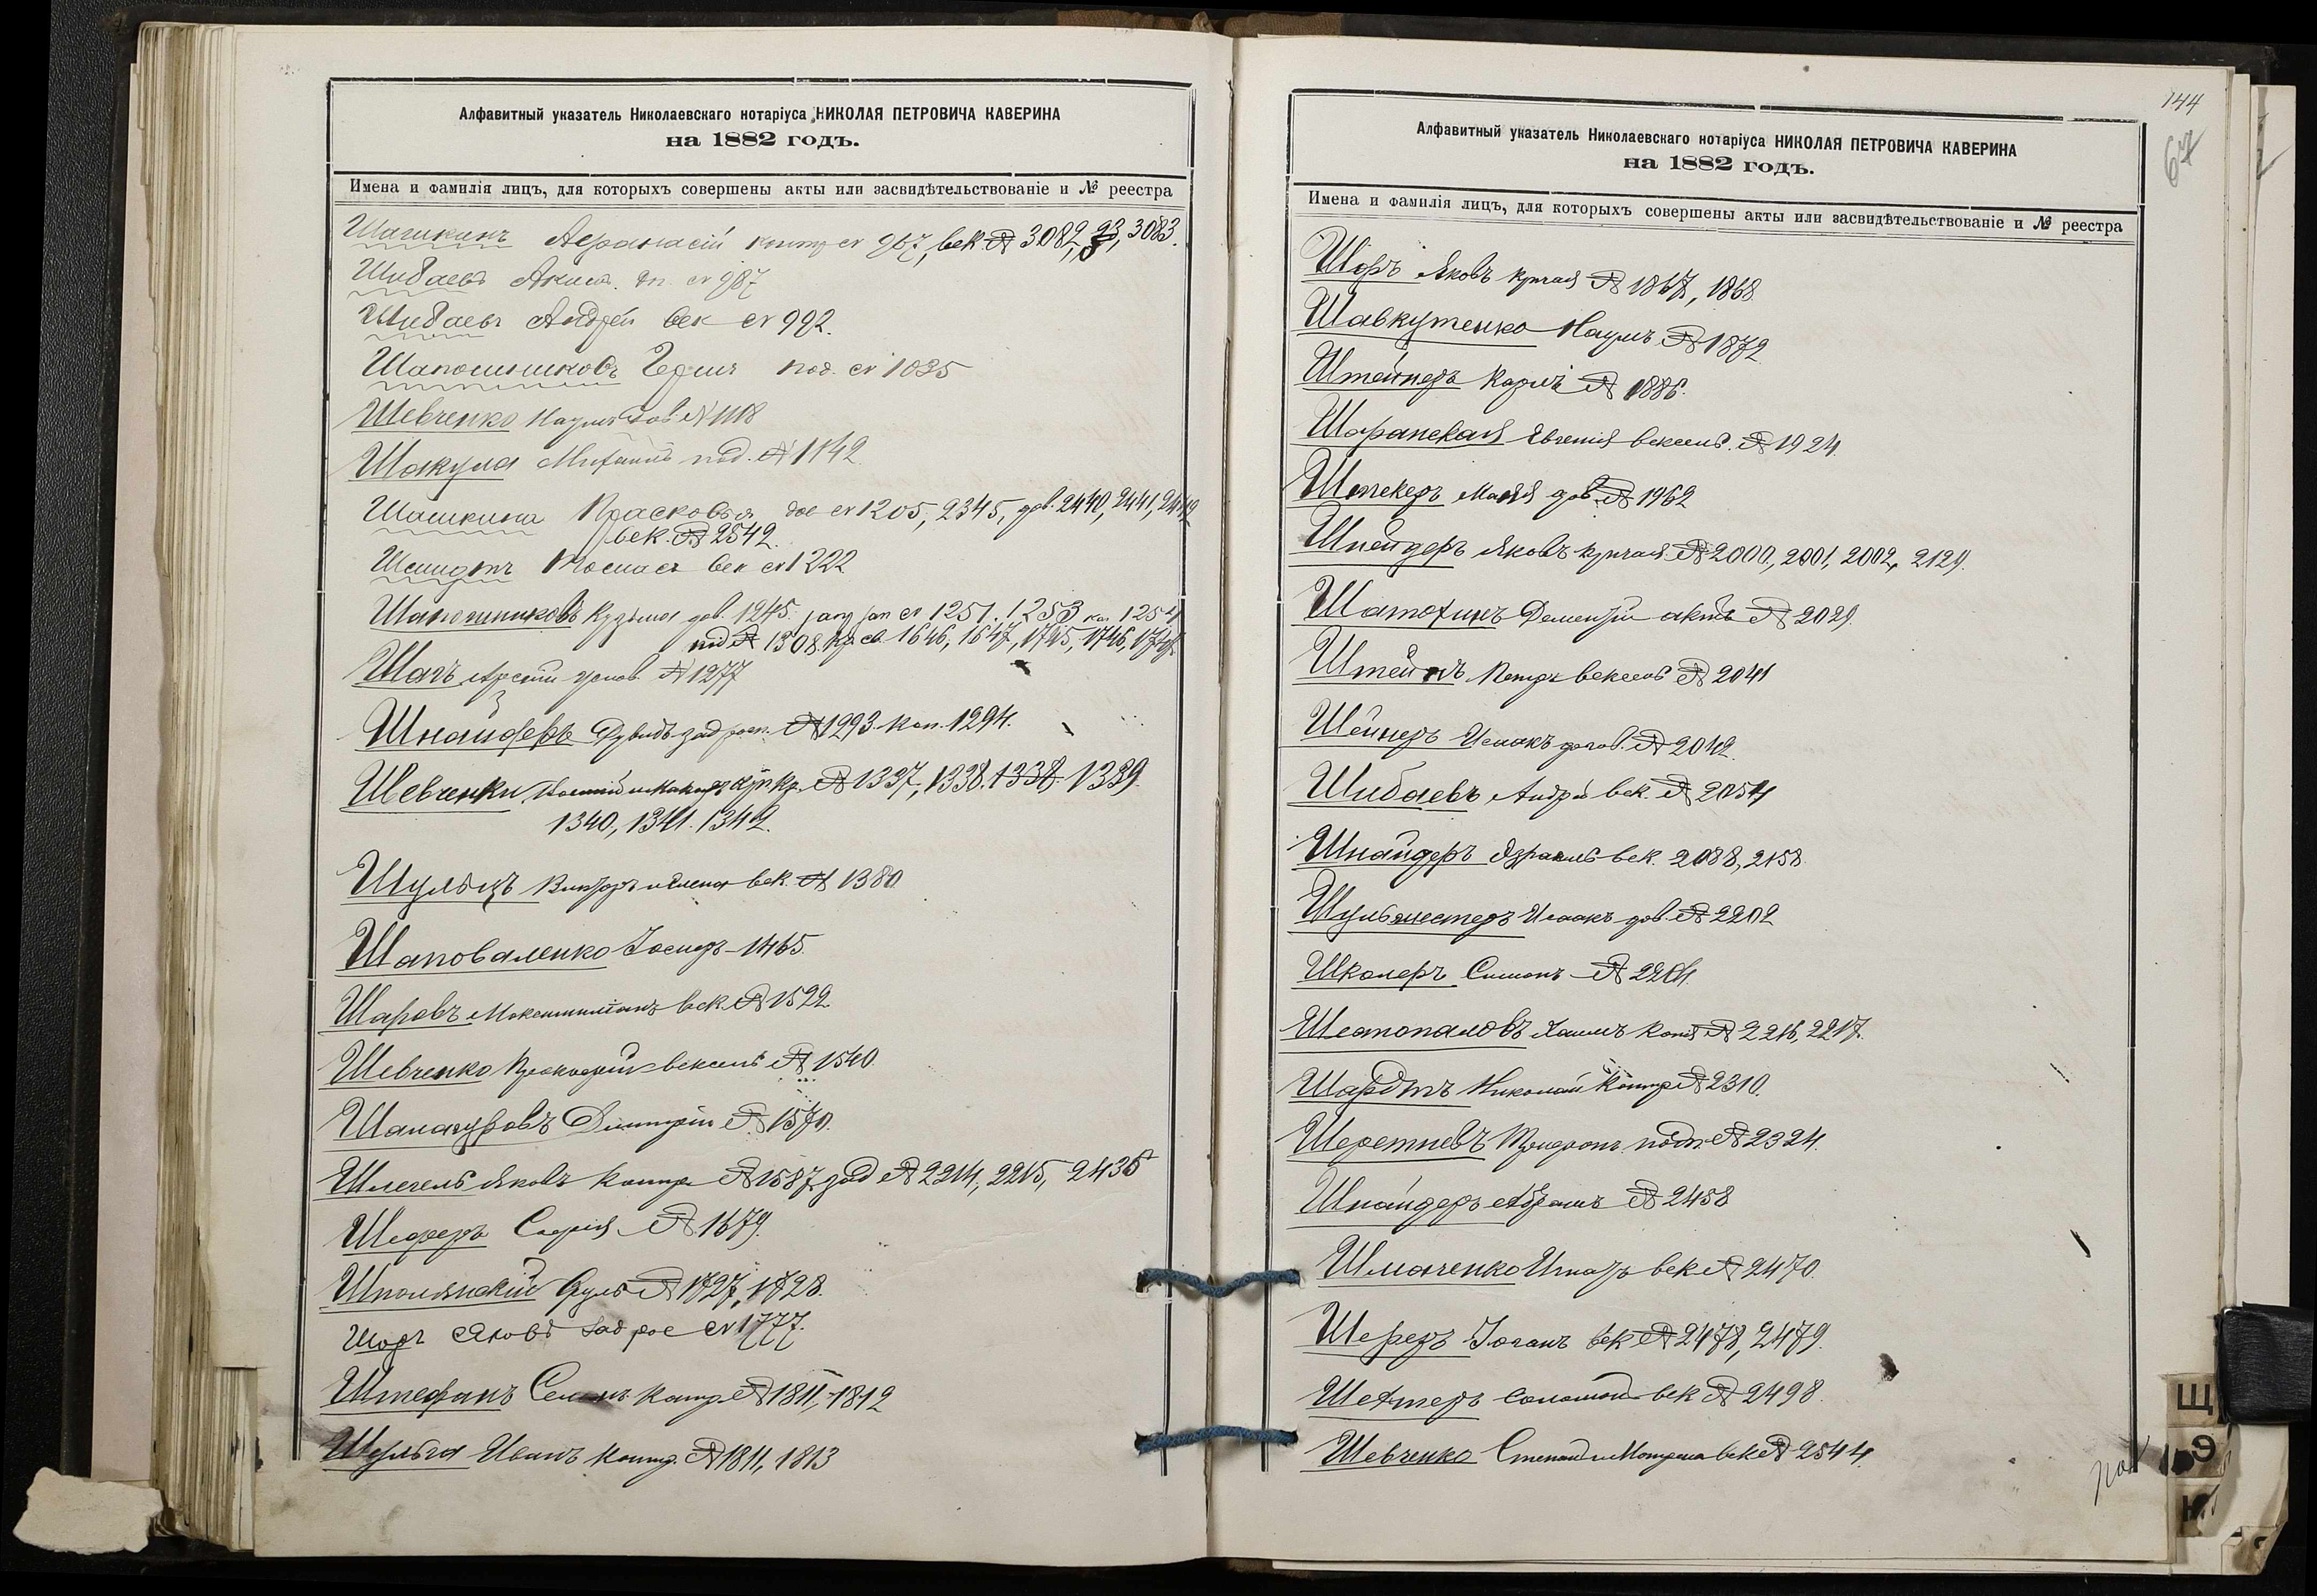 Алфавитный указатель Николаевскаго нотаріуса НИКОЛАЯ ПЕТРОВИЧА КАВЕРИНА
на 1882 годъ.
Имена и фамилія лицъ, для которыхъ совершены акты или засвидѣтельствованіе и № реестра
Шашкинъ Афанасій контр № 967, век. № 3082, 3083.
Шибаевъ Аким. № 987
Шибаевъ Андрей век № 992.
Шапошниковъ под. № 1035
Шевченко Наумъ дов. № 1118
Шакула под. № 1142
Шашкина Прасковья № 1205, 2345, дов. 2440, 2441, 2442
век. № 2542.
Шмидтъ век № 1222
Шапошниковъ Кузьма дов. 1245. № 1251. 1253 коп 1254
под № 1308. 1646, 1647, 1745, 1746,
Шагъ Арсеній услов. № 1277
Шнайдеръ Дувидъ № 1293 коп. 1294.
Шевченки № 1337, 1338. 1338 1339.
1340, 1341. 1342.
Шульцъ Викторъ и Елена век. № 1380
Шаповаленко Іосифъ 1465.
Шаровъ Максимиліанъ век. № 1522
Шевченко Прокофій вексель № 1540.
Димитрій № 1570.
Шмегель Яковъ контр № 1587 зад № 2214, 2215, 2435
Шеферъ Софія № 1679.
Шполянскій Сруль № 1727, 1728.
Шоръ Яковъ зад рос № 1777.
Штефанъ Семенъ контр № 1811, 1812
Шульга Иванъ контр. № 1811, 1813
144
67
Алфавитный указатель Николаевскаго нотаріуса НИКОЛАЯ ПЕТРОВИЧА КАВЕРИНА
на 1882 годъ.
Имена и фамилія лицъ, для которыхъ совершены акты или засвидѣтельствованіе и № реестра
Шоръ Яковъ купчая № 1867, 1868.
Шавкутенко Наумъ № 1872
Штейнеръ Карлъ № 1886.
Шаранская Евгенія вексель. № 1924.
Штекеръ дов. № 1962
Шнейдеръ Яковъ купчая. № 2000, 2001, 2002, 2129.
Шатохинъ Дементій актъ № 2029.
Штейнъ Петръ вексель № 2041
Шейнеръ Исаакъ догов. № 2042.
Шибаевъ Андрей век. № 2054
Шнайдеръ Израиль век. 2088, 2158
Шульмейстеръ Исаакъ дов. № 2202
Школеръ Симонъ № 2204.
Шестопаловъ Хаимъ копія № 2216, 2217.
Шардтъ Николай контр № 2310.
Шеретневъ Трифонъ подп. № 2324.
Шнайдеръ Абрамъ № 2458
Шмаченко Игнатъ век № 2470.
Шереръ Іоганъ век № 2478, 2479.
Шехтеръ Соломонъ век № 2498.
Шевченко Степанъ и Матрена век № 2544.
Щ
Э
Ю